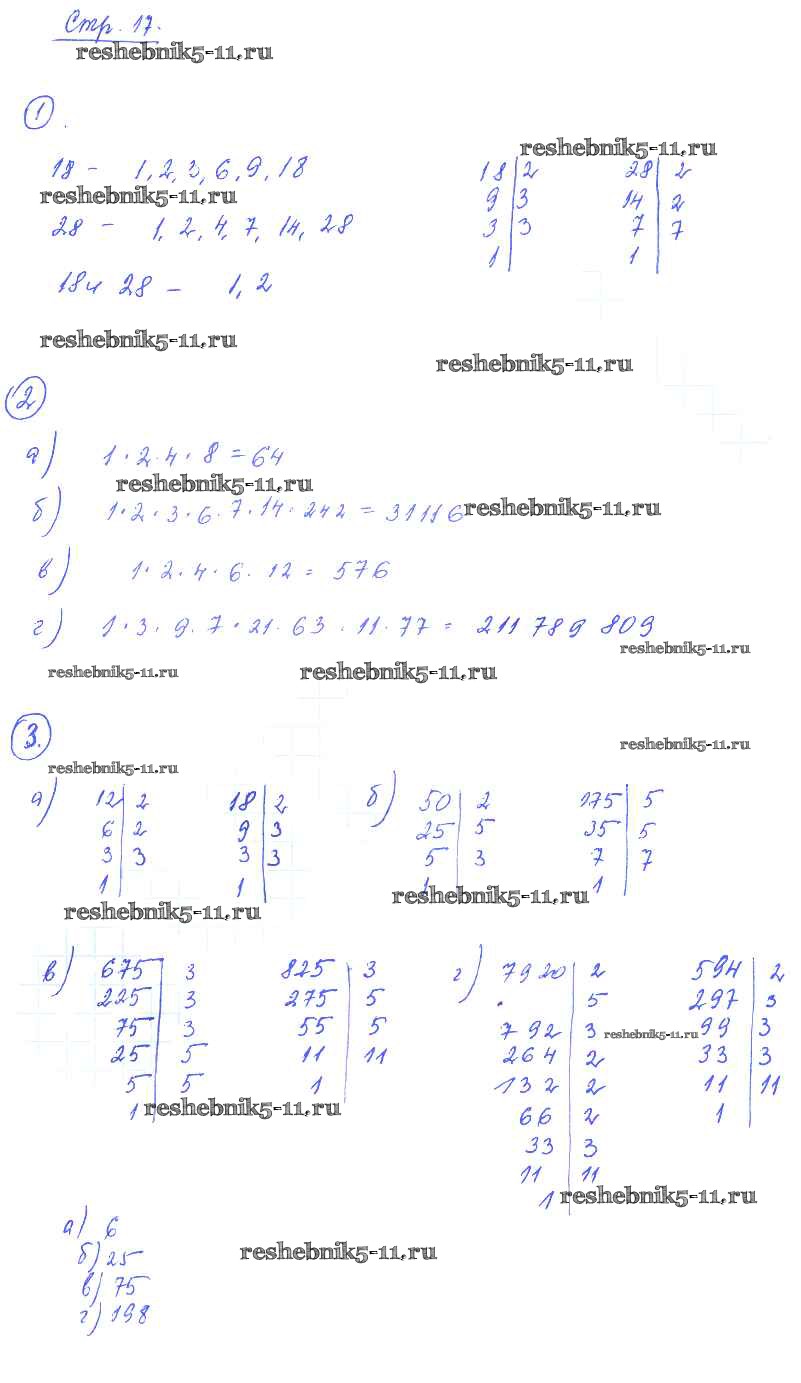 Стр. 17.
reshebnik5-11.ru
1.
reshebnik5-11.ru
18 - 1, 2, 3, 6, 9, 18
18 | 2   28 | 2
reshebnik5-11.ru
9 | 3   14 | 2
28 - 1, 2, 4, 7, 14, 28
3 | 3   7 | 7
1   1
18 и 28 - 1, 2
reshebnik5-11.ru
reshebnik5-11.ru
2
а) 1·2·4·8=64
reshebnik5-11.ru
б) 1·2·3·6·7·14·242=31116
reshebnik5-11.ru
в) 1·2·4·6·12=576
г) 1·3·9·7·21·63·11·77=211 789 809
reshebnik5-11.ru
reshebnik5-11.ru
reshebnik5-11.ru
3.
reshebnik5-11.ru
reshebnik5-11.ru
а) 12 | 2   18 | 2   б) 50 | 2   175 | 5
6 | 2   9 | 3   25 | 5   35 | 5
3 | 3   3 | 3   5 | 3   7 | 7
1   1   1   1
reshebnik5-11.ru
reshebnik5-11.ru
в) 675 | 3   825 | 3   г) 7920 | 2   594 | 2
225 | 3   275 | 5   | 5   297 | 3
75 | 3   55 | 5   792 | 3   99 | 3
reshebnik5-11.ru
25 | 5   11 | 11   264 | 2   33 | 3
5 | 5   1   132 | 2   11 | 11
1   66 | 2   1
reshebnik5-11.ru
33 | 3
11 | 11
1
reshebnik5-11.ru
а) 6
б) 25
reshebnik5-11.ru
в) 75
г) 198